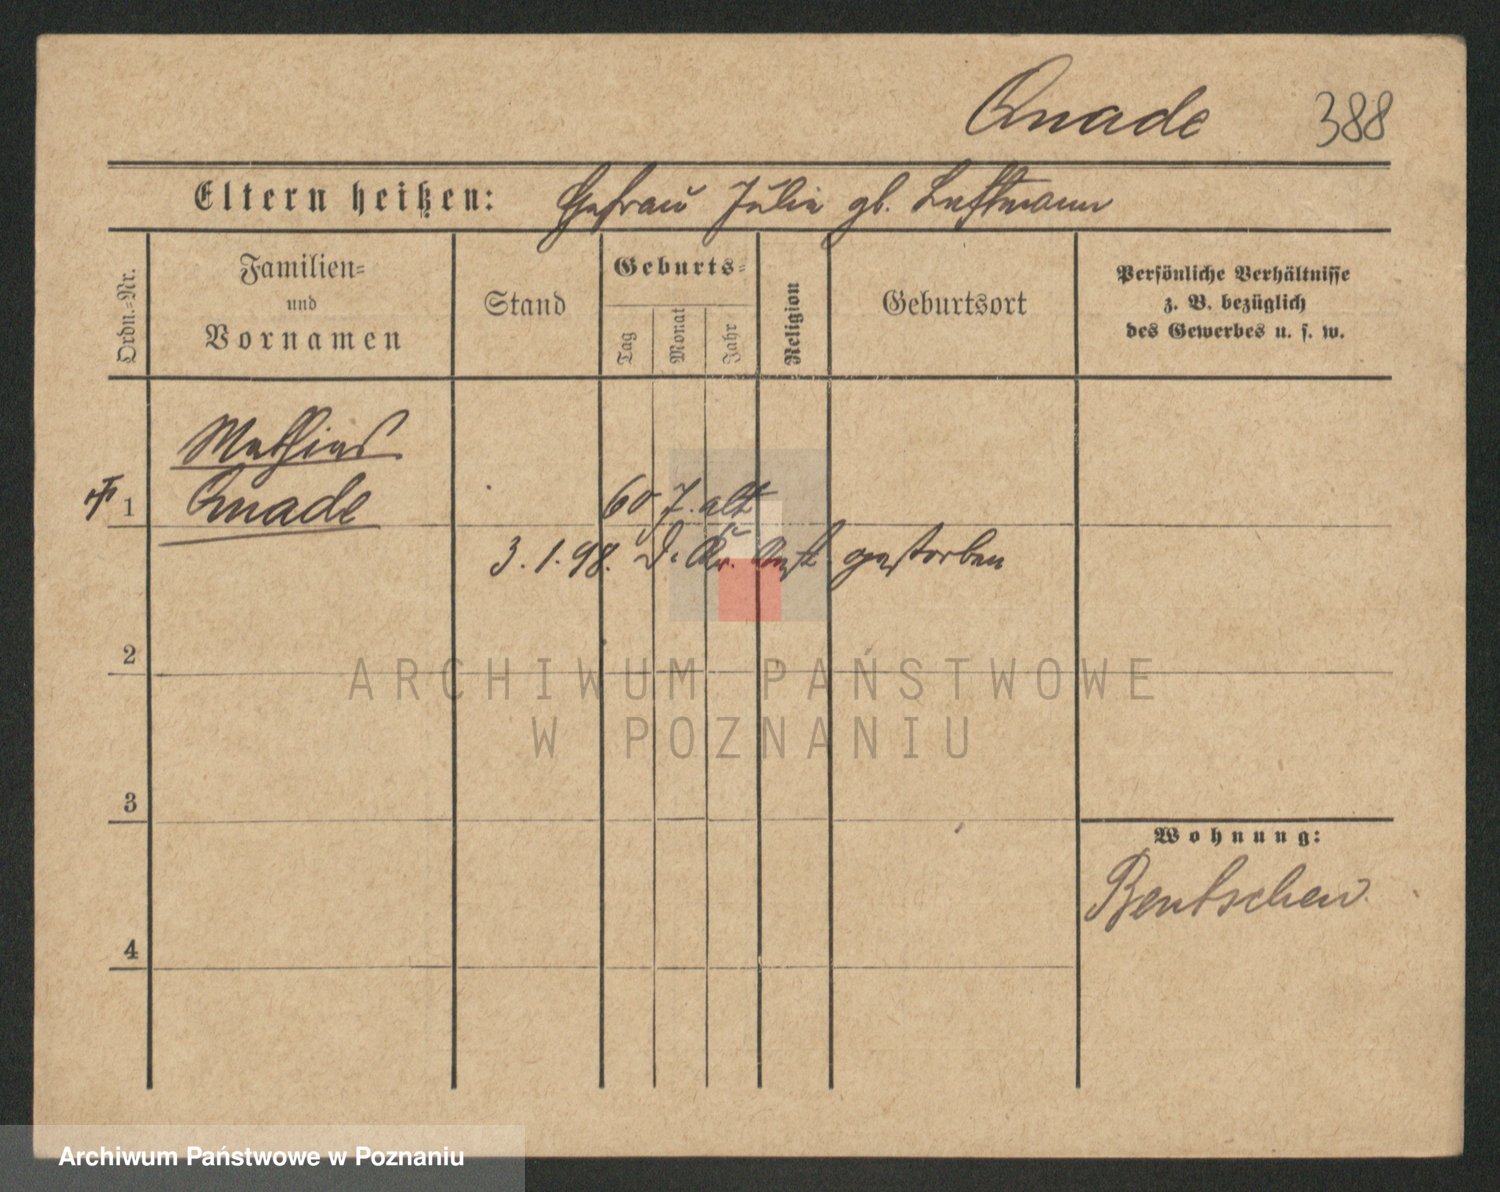 Quade 388
Eltern heißen: Ehefrau Julie gb. Luftmann
Ordn.=Nr.
Familien=
und
Vornamen
Stand
Geburts=
Tag
Monat
Jahr
Religion
Geburtsort
Persönliche Verhältnisse
z. B. bezüglich
des Gewerbes u. s. w.
Mathias
1 Quade 60 J. alt
3.1.98. gestorben
2
ARCHIWUM PAŃSTWOWE
W POZNANIU
3
Wohnung:
Bentschen
4
Archiwum Państwowe w Poznaniu